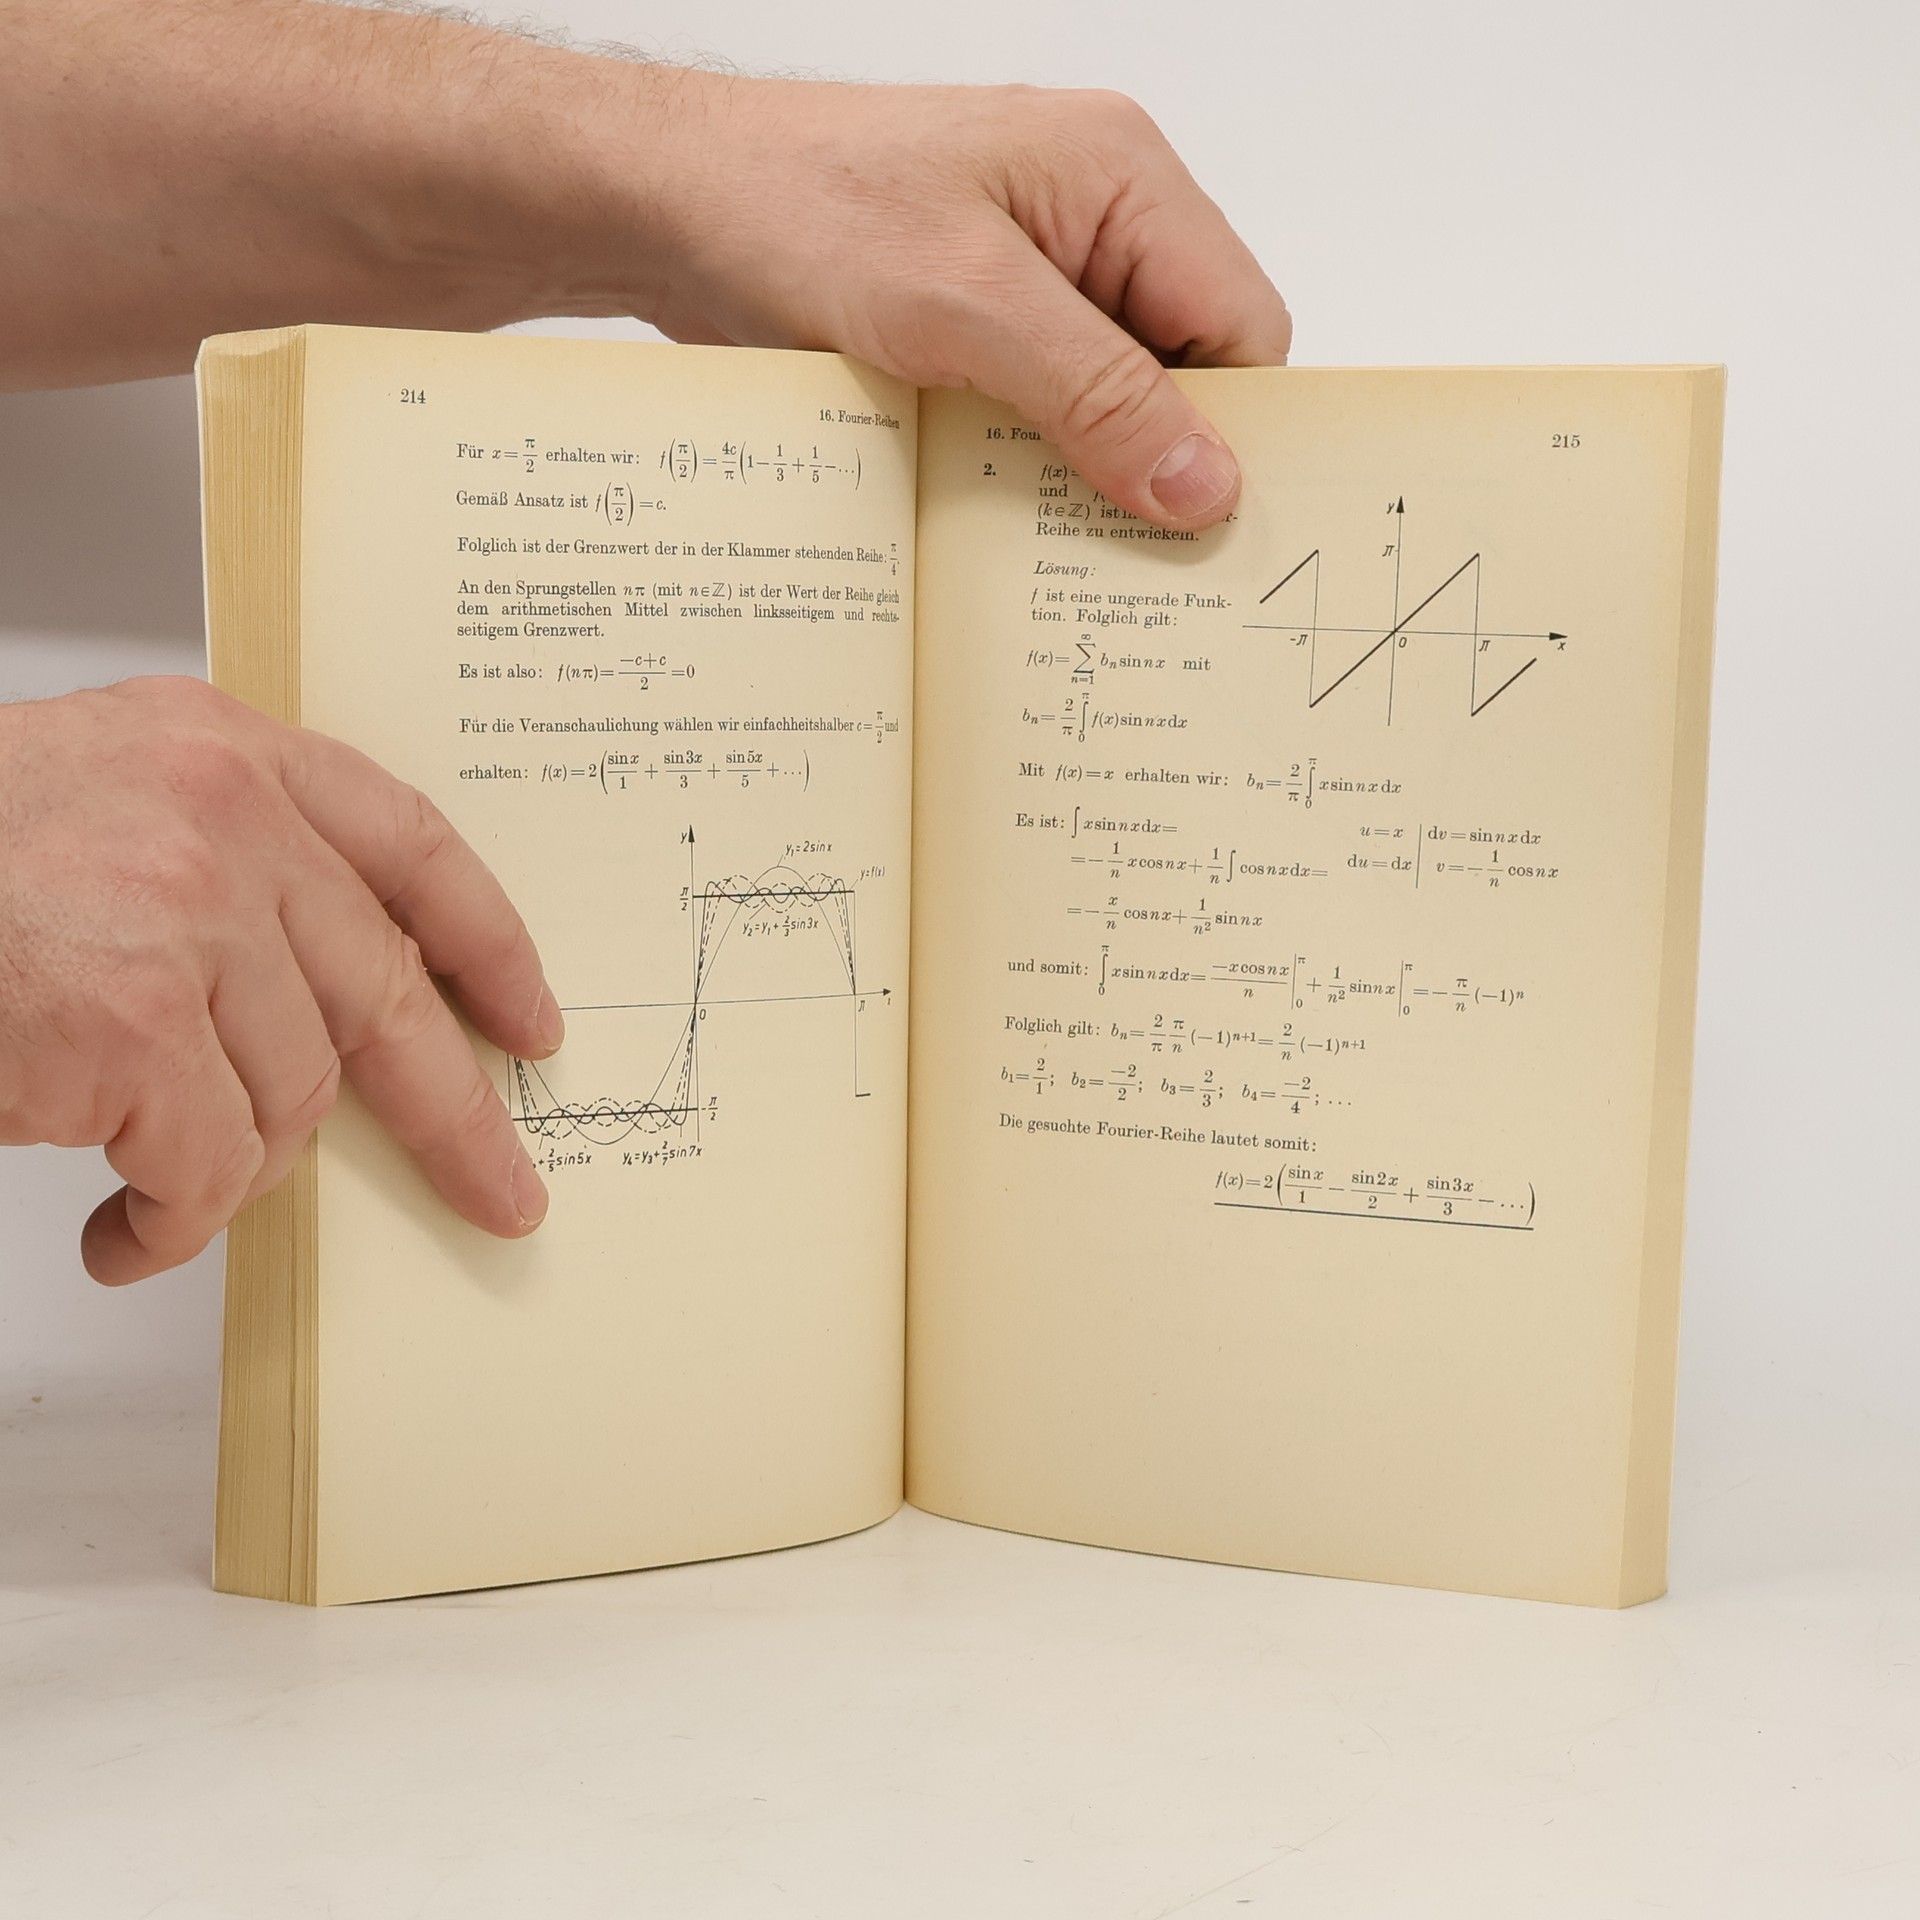 214
16. Fourier-Reihen
Für x = π/2 erhalten wir: f(π/2) = 4c/π (1 − 1/3 + 1/5 − ...)
Gemäß Ansatz ist f(π/2) = c.
Folglich ist der Grenzwert der in der Klammer stehenden Reihe: π/4.
An den Sprungstellen nπ (mit n∈ℤ) ist der Wert der Reihe gleich
dem arithmetischen Mittel zwischen linksseitigem und rechts-
seitigem Grenzwert.
Es ist also: f(nπ) = (−c+c)/2 = 0
Für die Veranschaulichung wählen wir einfachheitshalber c = π/2 und
erhalten: f(x) = 2(sin x/1 + sin 3x/3 + sin 5x/5 + ...)
y
y₁=2sinx
y=f(x)
π/2
y₂=y₁+2/3 sin3x
0
π
-π/2
+2/5 sin5x y₄=y₃+2/7 sin7x
16.
215
2. f(x)=
und
(k∈ℤ) ist
Reihe zu entwickeln.
y
π
-π
0
π
x
Lösung:
f ist eine ungerade Funk-
tion. Folglich gilt:
f(x) = ∑_{n=1}^{∞} bₙ sin nx mit
bₙ = 2/π ∫₀^π f(x) sin nx dx
Mit f(x) = x erhalten wir: bₙ = 2/π ∫₀^π x sin nx dx
Es ist: ∫ x sin nx dx = u = x | dv = sin nx dx
= −1/n x cos nx + 1/n ∫ cos nx dx = du = dx | v = −1/n cos nx
= −x/n cos nx + 1/n² sin nx
und somit: ∫₀^π x sin nx dx = (−x cos nx)/n |₀^π + 1/n² sin nx |₀^π = −π/n (−1)ⁿ
Folglich gilt: bₙ = 2/π π/n (−1)ⁿ⁺¹ = 2/n (−1)ⁿ⁺¹
b₁ = 2/1; b₂ = −2/2; b₃ = 2/3; b₄ = −2/4; ...
Die gesuchte Fourier-Reihe lautet somit:
f(x) = 2(sin x/1 − sin 2x/2 + sin 3x/3 − ...)